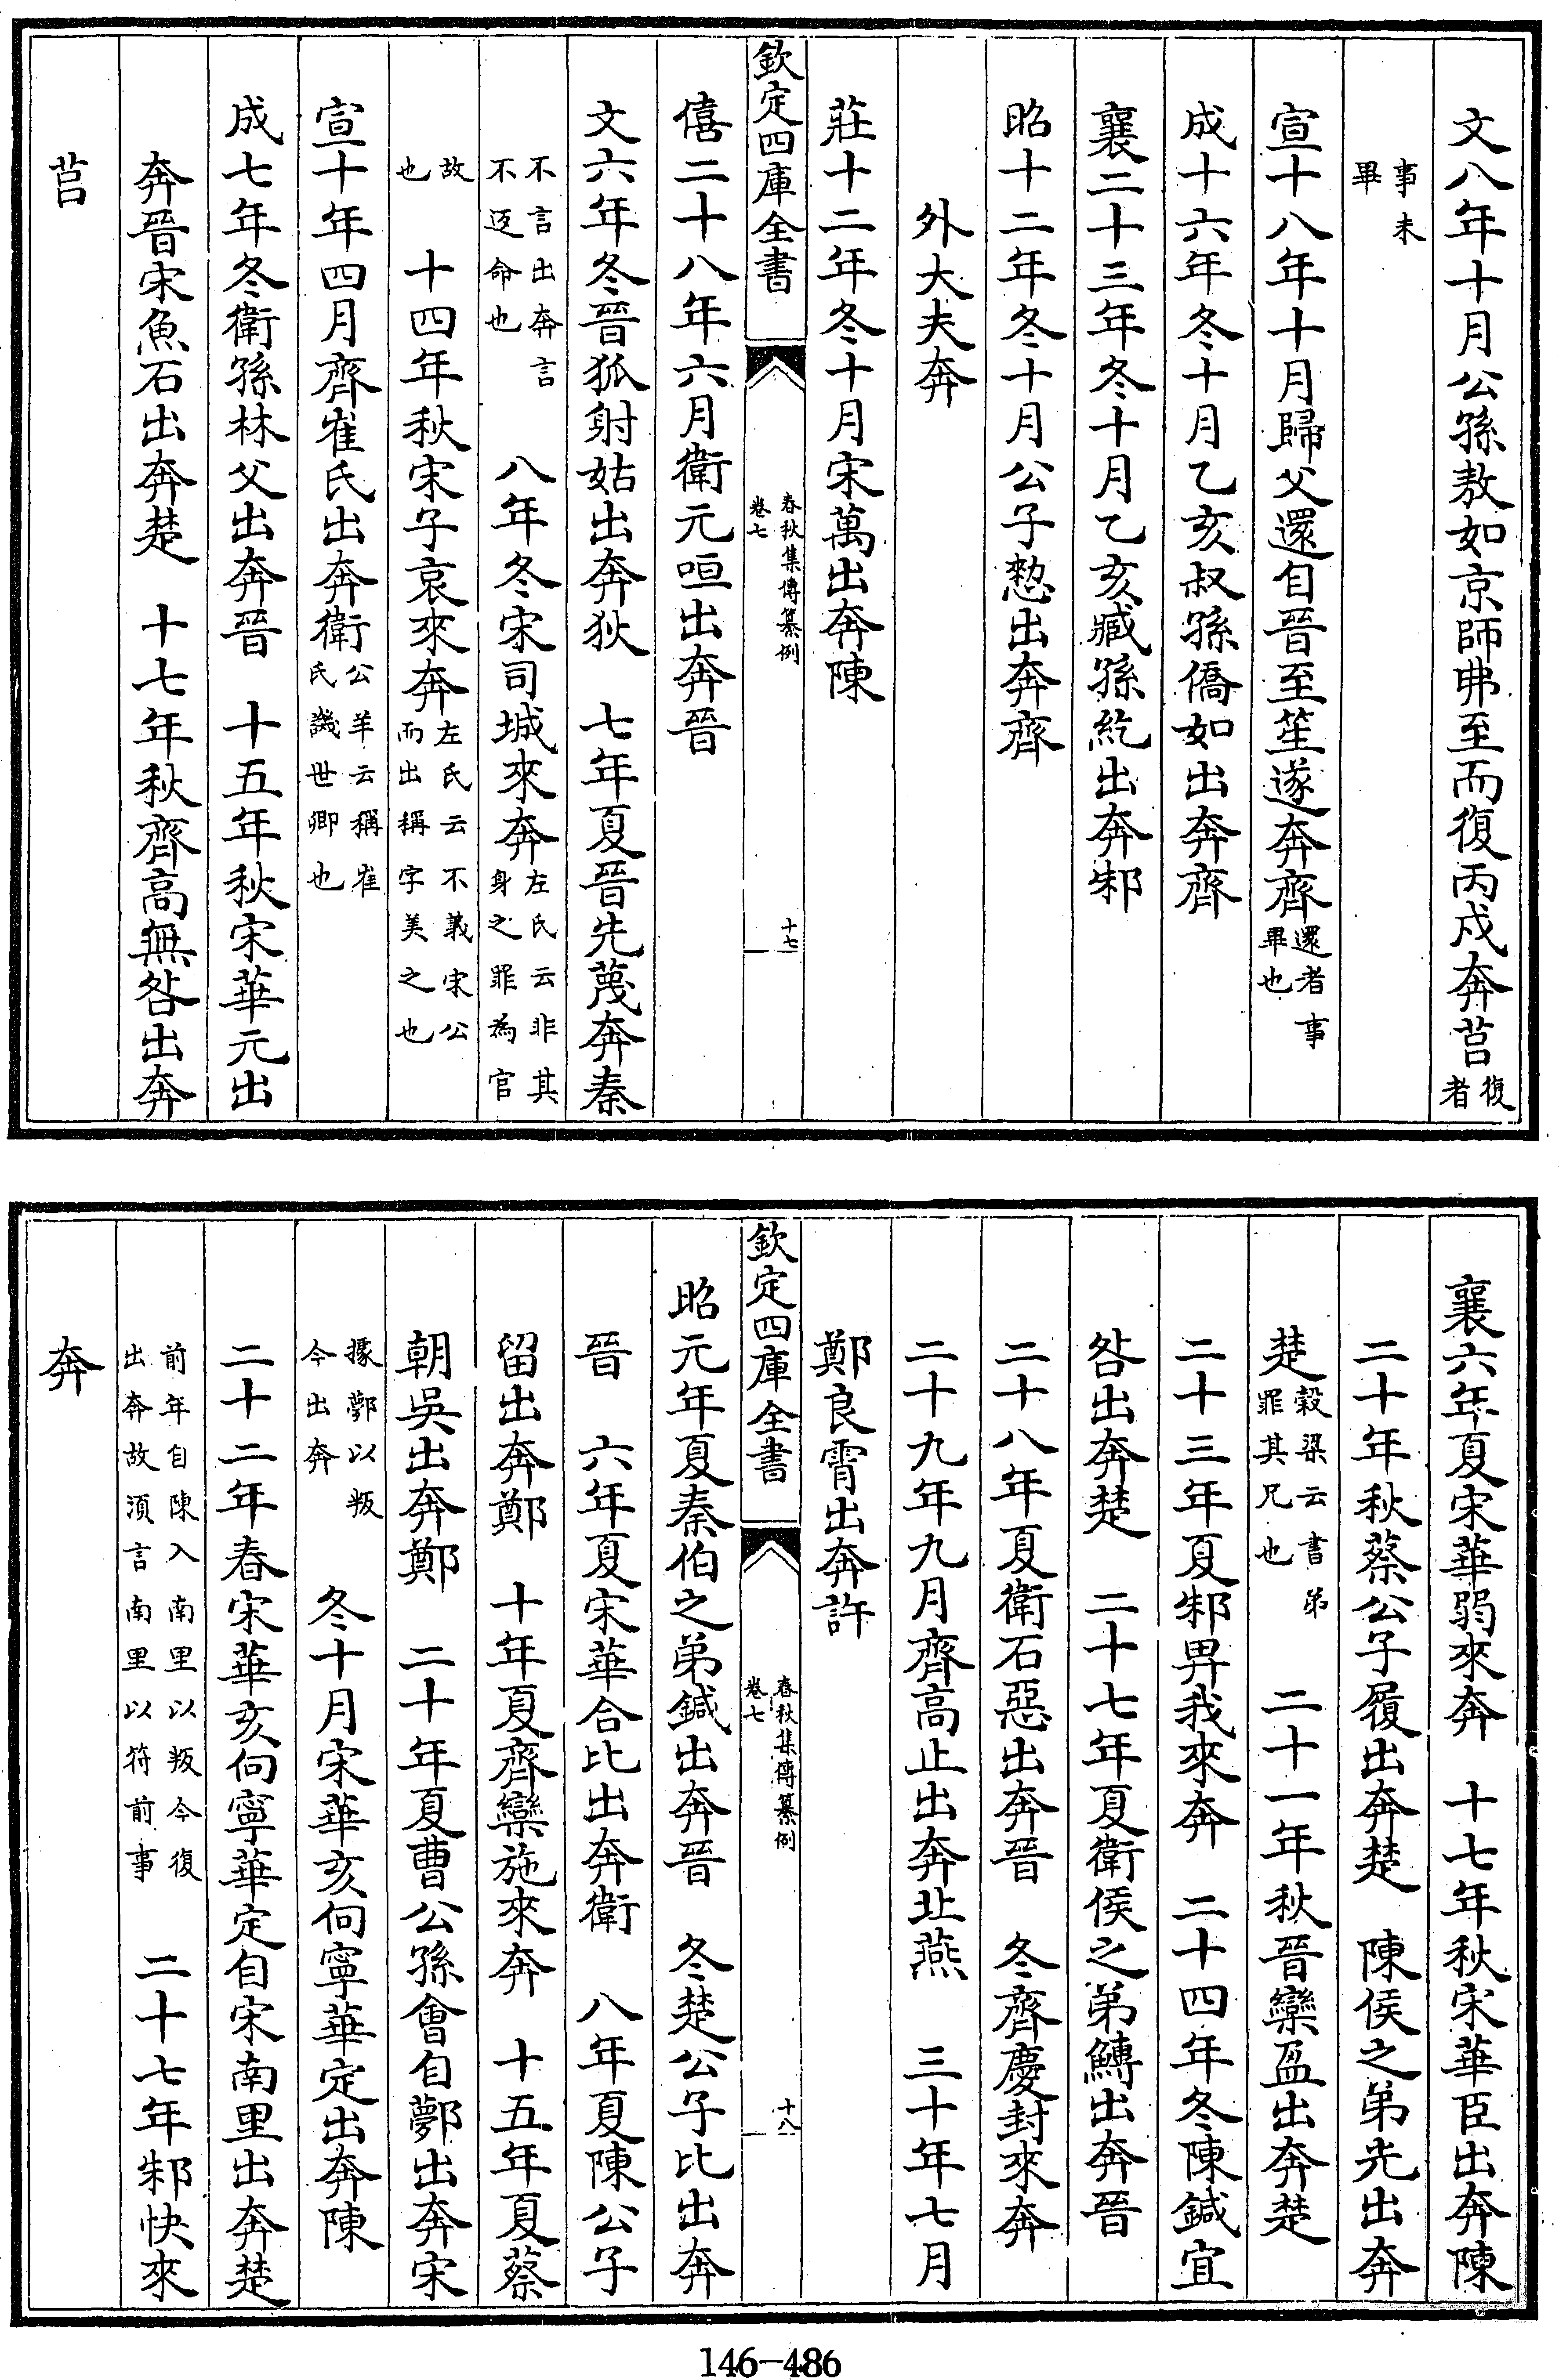 文八年十月公孫敖如京師弗至而復丙戍奔莒復者
事未畢
宣十八年十月歸父還自晉至笙遂奔齊還者事畢也
成十六年冬十月乙亥叔孫僑如出奔齊
襄二十三年冬十月乙亥臧孫紇出奔邾
昭十二年冬十月公子憖出奔齊
外大夫奔
莊十二年冬十月宋萬出奔陳
欽定四庫全書
春秋集傳纂例
卷七
十七
僖二十八年六月衛元咺出奔晉
文六年冬晉狐射姑出奔狄 七年夏晉先蔑奔秦
不言出奔言不返命也 八年冬宋司城來奔左氏云非其身之罪為官
故也 十四年秋宋子哀來奔左氏云不義宋公而出稱字美之也
宣十年四月齊崔氏出奔衛公羊云稱崔氏譏世卿也
成七年冬衛孫林父出奔晉 十五年秋宋華元出
奔晉宋魚石出奔楚 十七年秋齊高無咎出奔
莒
襄六年夏宋華弱來奔 十七年秋宋華臣出奔陳
二十年秋蔡公子履出奔楚 陳侯之弟光出奔
楚穀梁云書弟罪其兄也 二十一年秋晉欒盈出奔楚
二十三年夏邾畀我來奔 二十四年冬陳鍼宜
咎出奔楚 二十七年夏衛侯之弟鱄出奔晉
二十八年夏衛石惡出奔晉 冬齊慶封來奔
二十九年九月齊高止出奔北燕 三十年七月
鄭良霄出奔許
欽定四庫全書
春秋集傳纂例
卷七
十八
昭元年夏秦伯之弟鍼出奔晉 冬楚公子比出奔
晉 六年夏宋華合比出奔衛 八年夏陳公子
留出奔鄭 十年夏齊欒施來奔 十五年夏蔡
朝吳出奔鄭 二十年夏曹公孫會自鄸出奔宋
據鄸以叛今出奔 冬十月宋華亥向寧華定出奔陳
二十二年春宋華亥向寧華定自宋南里出奔楚
前年自陳入南里以叛今復出奔故須言南里以符前事 二十七年邾快來
奔
146-486